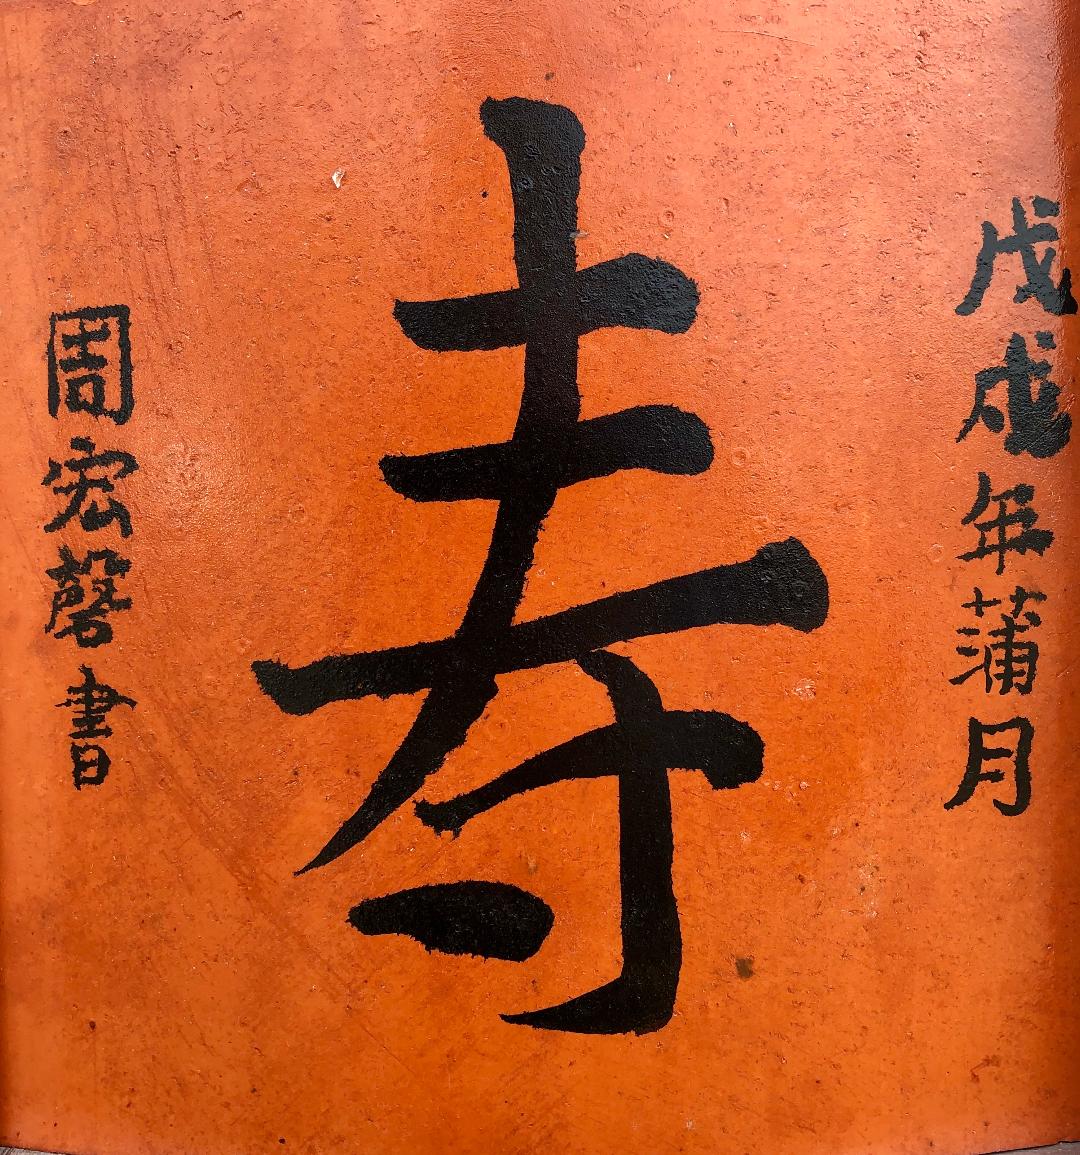 戊戌年蒲月
寿
周宏磬書